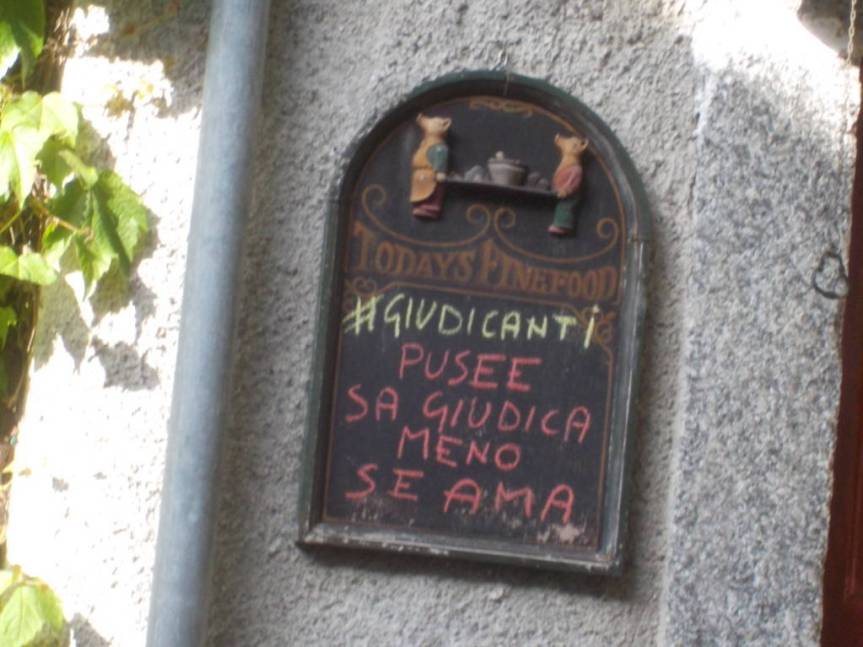 TODAY'S FINEFOOD
#GIUDICANTI
PUSEE
SA GIUDICA
MENO
SE AMA